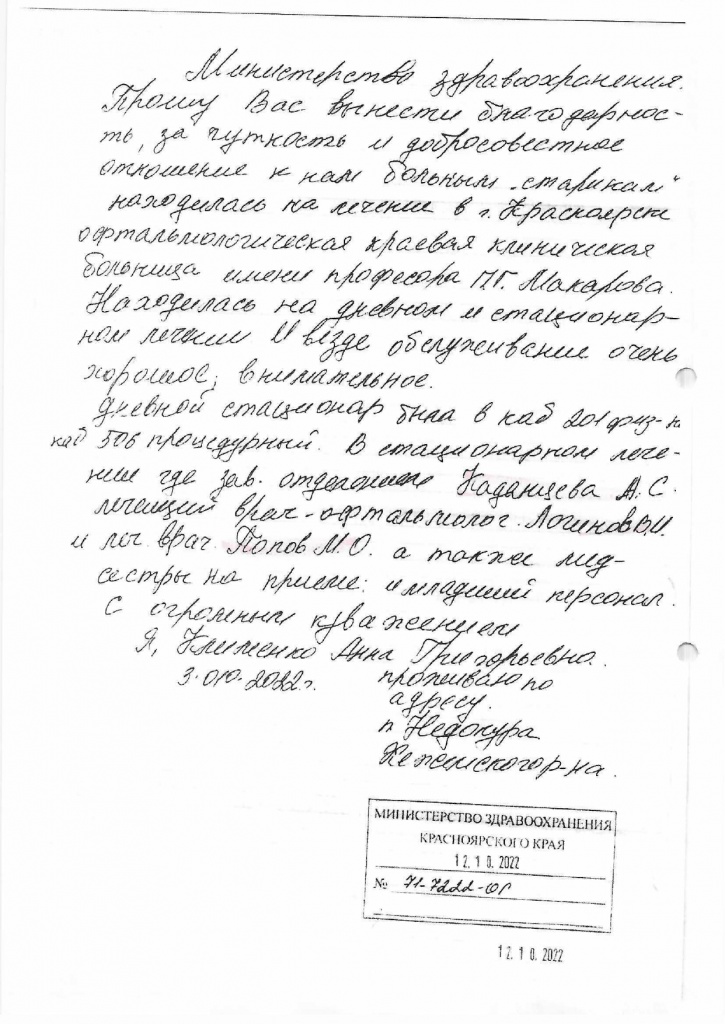 Министерство здравоохранения.
Прошу Вас вынести благодарнос-
ть, за чуткость и добросовестное
отношение к нам больным „старикам"
находилась на лечение в г. Красноярске
офтальмологическая краевая клиническая
больница имени професора П.Г. Макарова.
Находилась на дневном и стационар-
ном лечении И везде обслуживание очень
хорошое; внимательное.
дневной стационар была в каб 201 физ-к
каб 506 процедурный. В стационарном лече-
нии где зав. отделением А.С.
лечещий врач-офтальмолог. Логинов
и леч. врач. Попов М.О. а также мед-
сестры на приеме: и младший персонал.
С огромным уважением
Я, Клименко Анна Григорьевна.
3.010.2022г. проживаю по
адресу.
п Недокура
Кежемского р-на.
МИНИСТЕРСТВО ЗДРАВООХРАНЕНИЯ
КРАСНОЯРСКОГО КРАЯ
12.10.2022
№ 71-7222-ОГ
12.10.2022